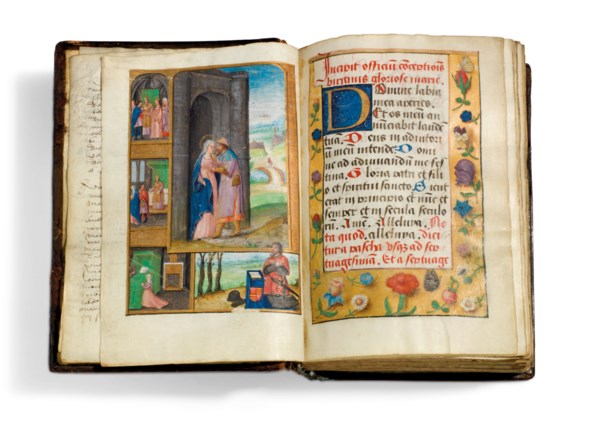 Incipit officiū cōceptiōis
virginis gloriose marie.
Domine labia
mea aperies.
Et os meū an
nūciabit laudē
tuā. Deus in adiutori
ū meū intende Domi
ne ad adiuuandū me fes
tina. Gloria patri et fili
o et spiritui sancto Sicut
erat in principio et nūc et
semper et in secula seculo
rū. Amē. Alleluya. No
ta quod, alleluya, dici
tur a pascha usqȝ ad sep
tuagesimā. Et a septuage